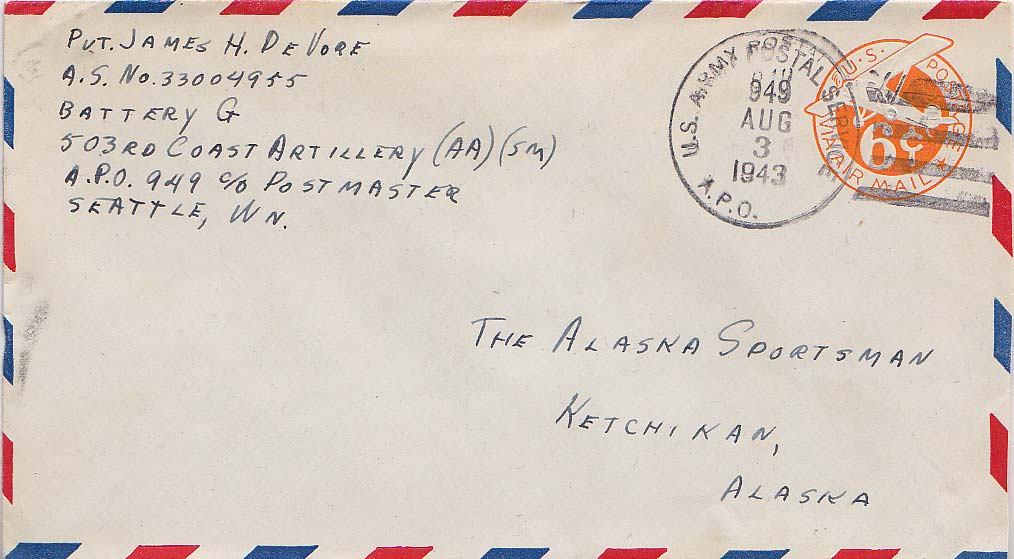 PVT. JAMES H. DEVORE
A.S. NO. 33004955
BATTERY G
503RD COAST ARTILLERY (AA) (SM)
A.P.O. 949 c/o POSTMASTER
SEATTLE, WN.
U.S. ARMY POSTAL SERVICE
949
AUG
3
1943
A.P.O.
U.S. POSTAGE
6¢
VIA AIR MAIL
THE ALASKA SPORTSMAN
KETCHIKAN,
ALASKA